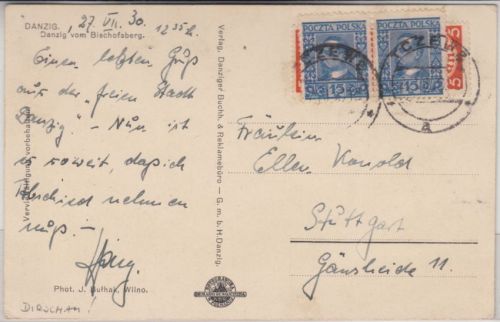 DANZIG. 27. VII. 30. 12 35 h.
Danzig vom Bischofsberg.
Einen letzten Gruß
aus der "freien Stadt
Danzig" – Nun ist
es soweit, daß ich
Abschied nehmen
muß. –
Phot. J. Bułhak, Wilno.
DIRSCHAU!
Vervielfältigung vorbehalten
Verlag, Danziger Buchh. & Reklamebüro – G. m. b. H. Danzig.
POCZTA POLSKA
POCZTA POLSKA
15
15
5
TCZEW 2
TCZEW 2
a
Fräulein
Ellen Konold
Stuttgart
Gänsheide 11.